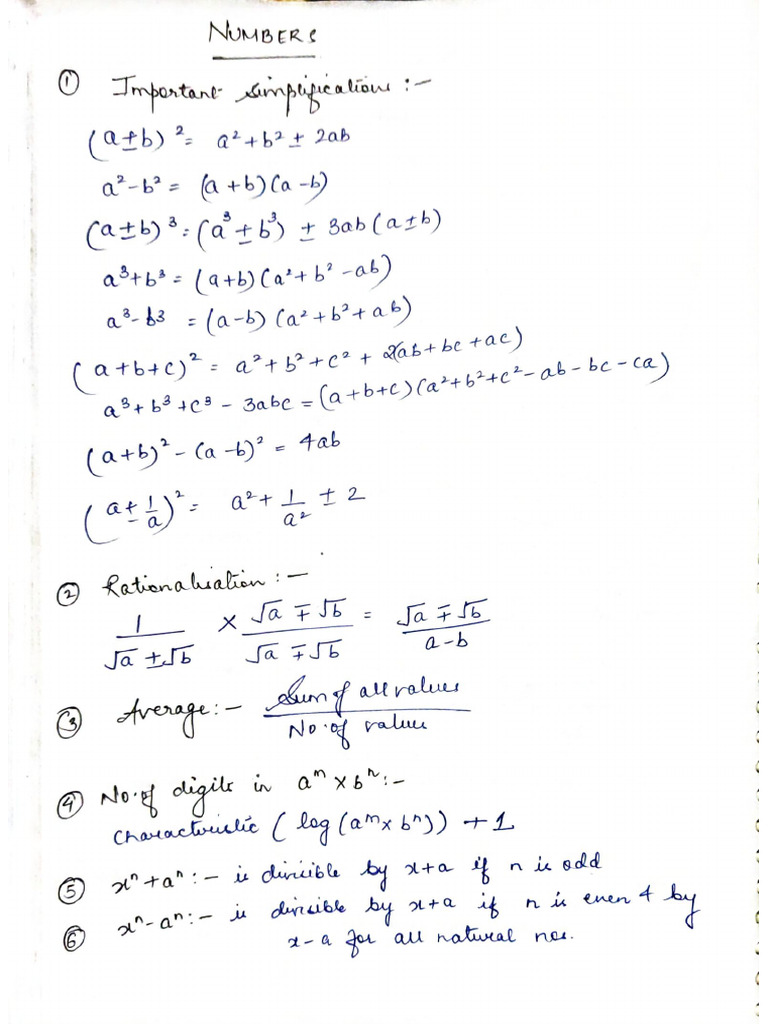 NUMBERS
① Important simplifications :-
(a±b)² = a² + b² ± 2ab
a² - b² = (a+b)(a-b)
(a±b)³ = (a³ ± b³) ± 3ab(a±b)
a³+b³ = (a+b)(a²+b²-ab)
a³-b³ = (a-b)(a²+b²+ab)
(a+b+c)² = a²+b²+c² + 2(ab+bc+ac)
a³+b³+c³ - 3abc = (a+b+c)(a²+b²+c²-ab-bc-ca)
(a+b)² - (a-b)² = 4ab
(a ± 1/a)² = a² + 1/a² ± 2
② Rationalisation :-
1/(√a ± √b) × (√a ∓ √b)/(√a ∓ √b) = (√a ∓ √b)/(a-b)
③ Average :- Sum of all values / No. of values
④ No. of digits in aᵐ × bⁿ :-
Characteristic (log (aᵐ × bⁿ)) + 1
⑤ xⁿ + aⁿ :- is divisible by x+a if n is odd
⑥ xⁿ - aⁿ :- is divisible by x+a if n is even & by
x-a for all natural nos.